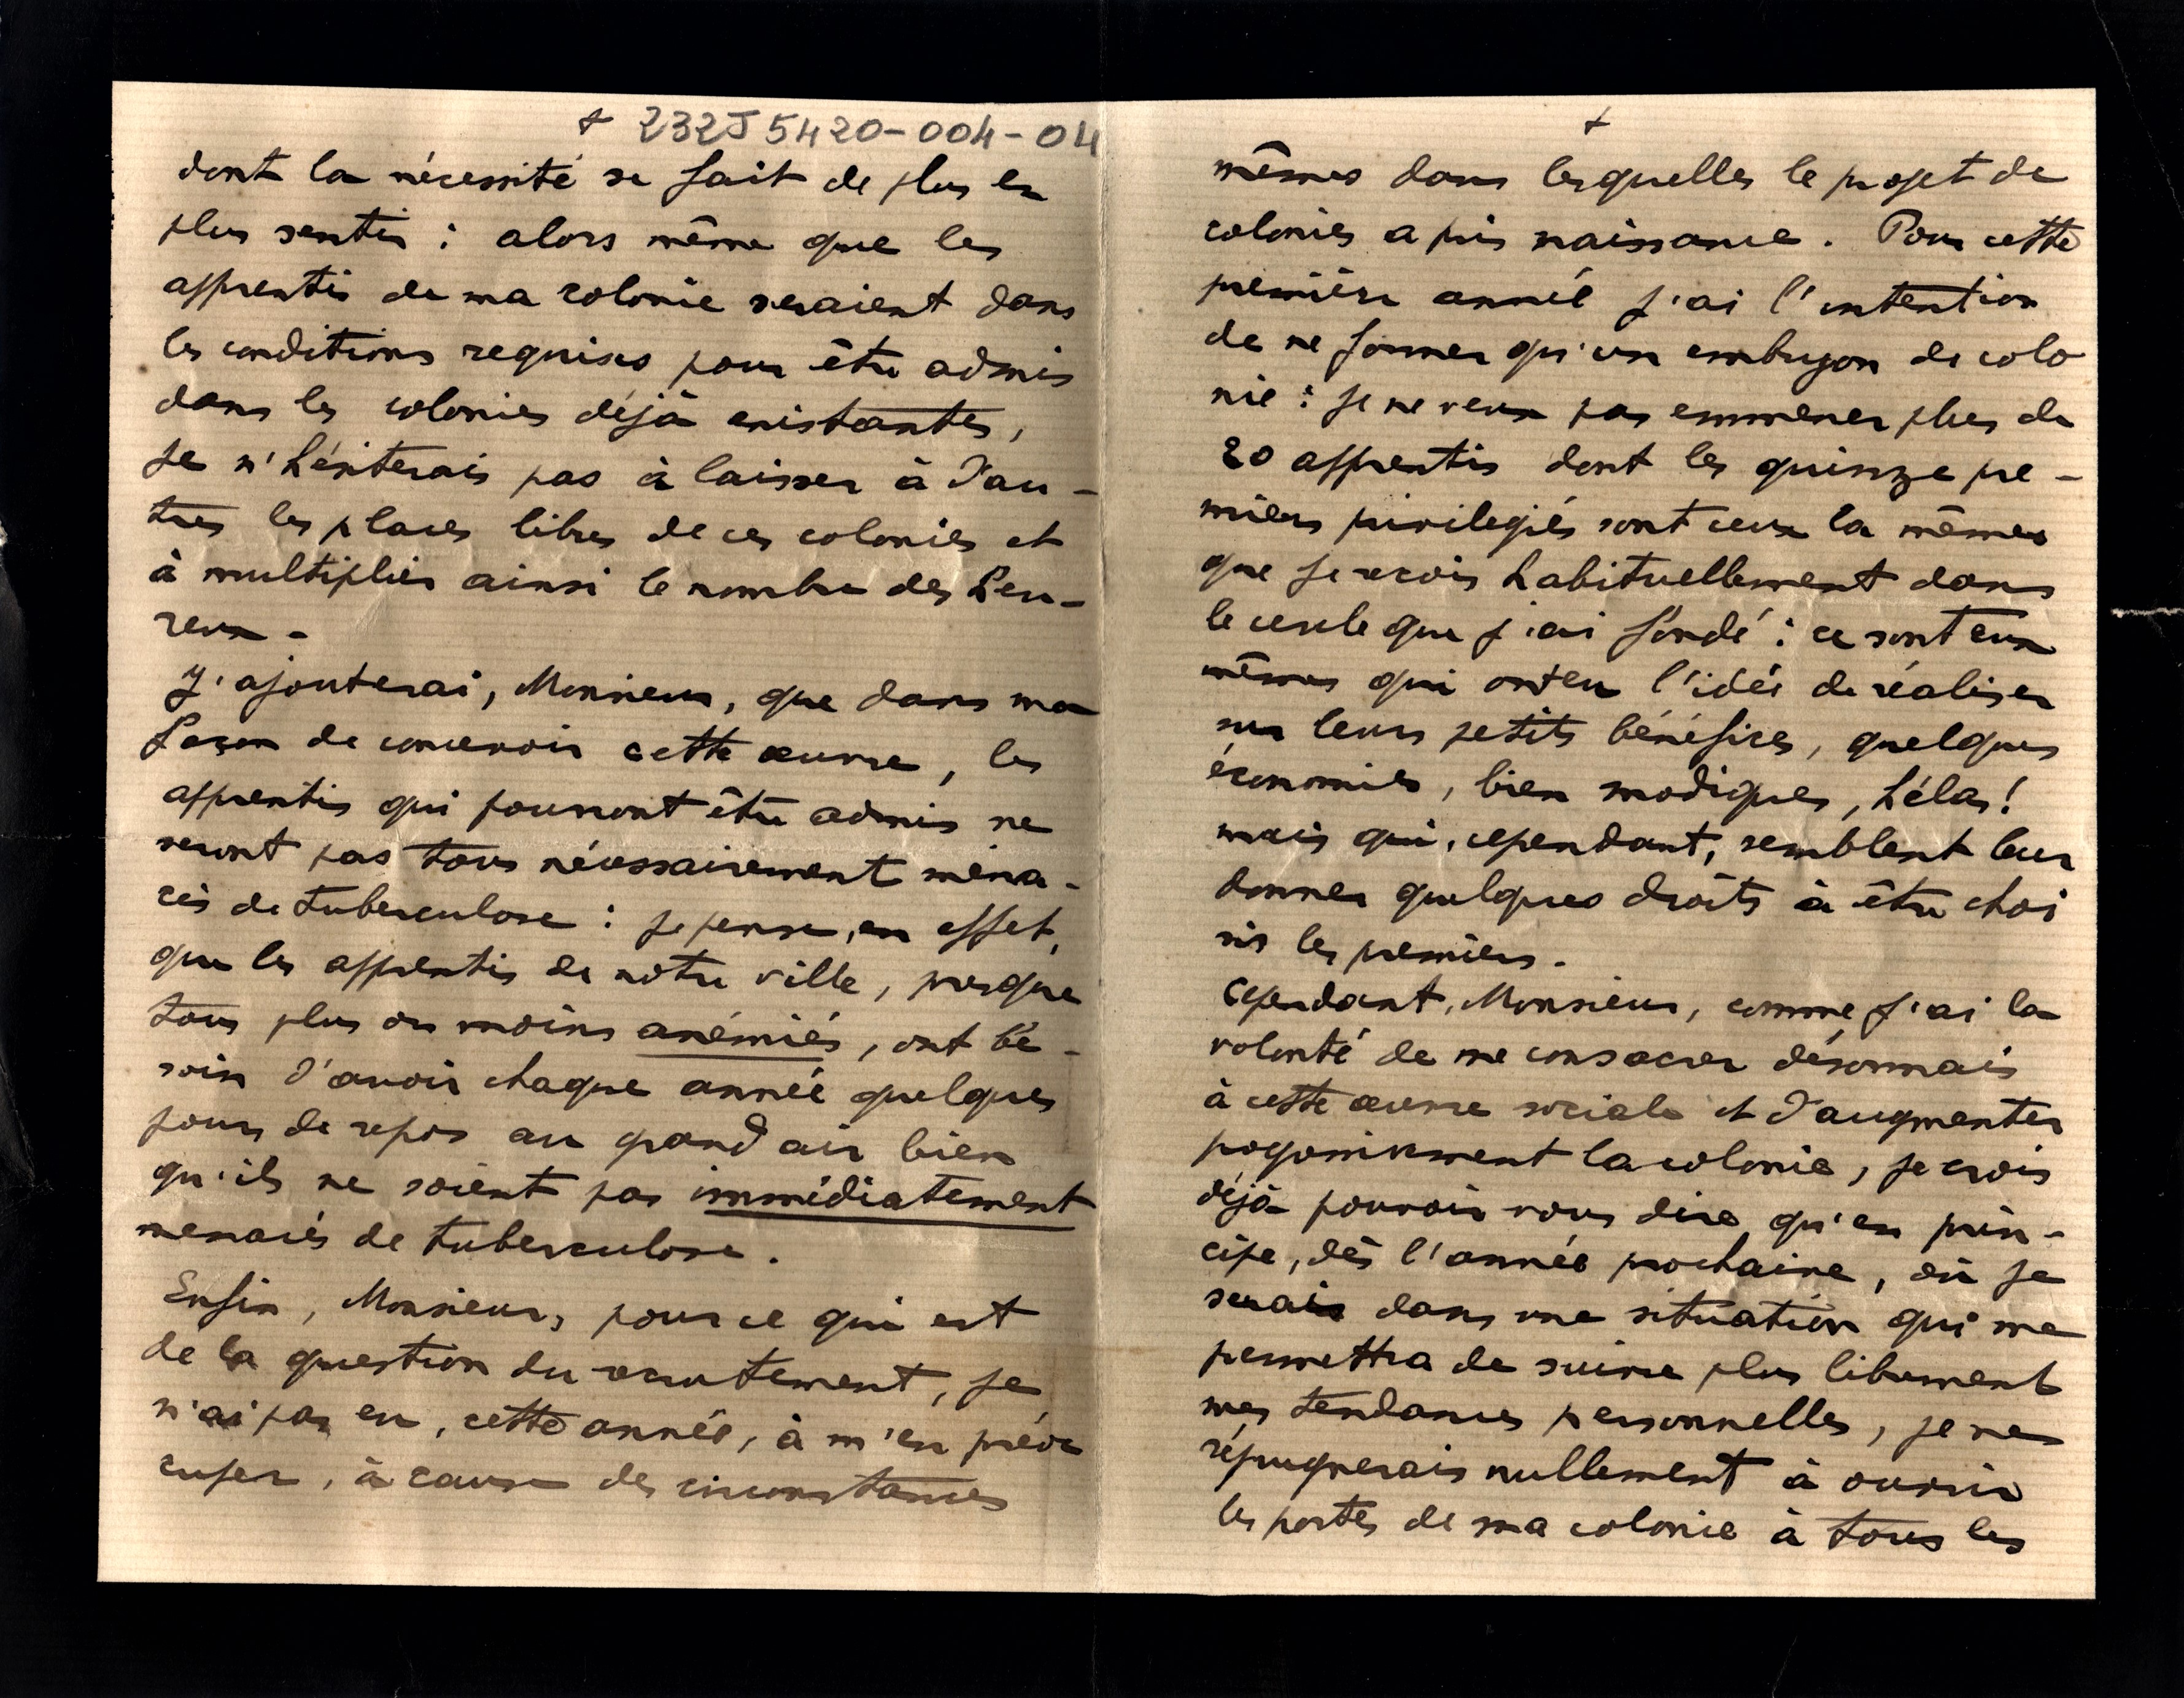 + 232J5420-004-04
dont la nécessité se fait de plus en
plus sentir : alors même que les
apprentis de ma colonie seraient dans
les conditions requises pour être admis
dans les colonies déjà existantes,
je n'hésiterais pas à laisser à d'au-
tres les places libres de ces colonies et
à multiplier ainsi le nombre des heu-
reux -
J'ajouterai, Monsieur, que dans ma
façon de concevoir cette œuvre, les
apprentis qui pourront être admis ne
seront pas tous nécessairement mena-
cés de tuberculose : je pense, en effet,
que les apprentis de notre ville, presque
tous plus ou moins anémiés, ont be-
soin d'avoir chaque année quelques
jours de repos au grand air bien
qu'ils ne soient pas immédiatement
menacés de tuberculose.
Enfin, Monsieur, pour ce qui est
de la question du recrutement, je
n'ai pas eu, cette année, à m'en préoc
cuper, à cause des circonstances
+
mêmes dans lesquelles le projet de
colonies a pris naissance. Pour cette
première année j'ai l'intention
de ne former qu'un embryon de colo
nie : je ne veux pas emmener plus de
20 apprentis dont les quinze pre-
miers privilegiés sont ceux la mêmes
que je reçois habituellement dans
le cercle que j'ai fondé : ce sont eux
mêmes qui ont eu l'idée de réaliser
sur leurs petits bénéfices, quelques
économies, bien modiques, hélas!
mais qui, cependant, semblent leur
donner quelques droits à être choi
sis les premiers.
Cependant, Monsieur, comme j'ai la
volonté de me consacrer désormais
à cette œuvre sociale et d'augmenter
progressivement la colonie, je crois
déjà pouvoir vous dire qu'en prin-
cipe, dès l'année prochaine, où je
serais dans une situation qui me
permettra de suivre plus librement
mes tendances personnelles, je ne
répugnerais nullement à ouvrir
les portes de ma colonie à tous les